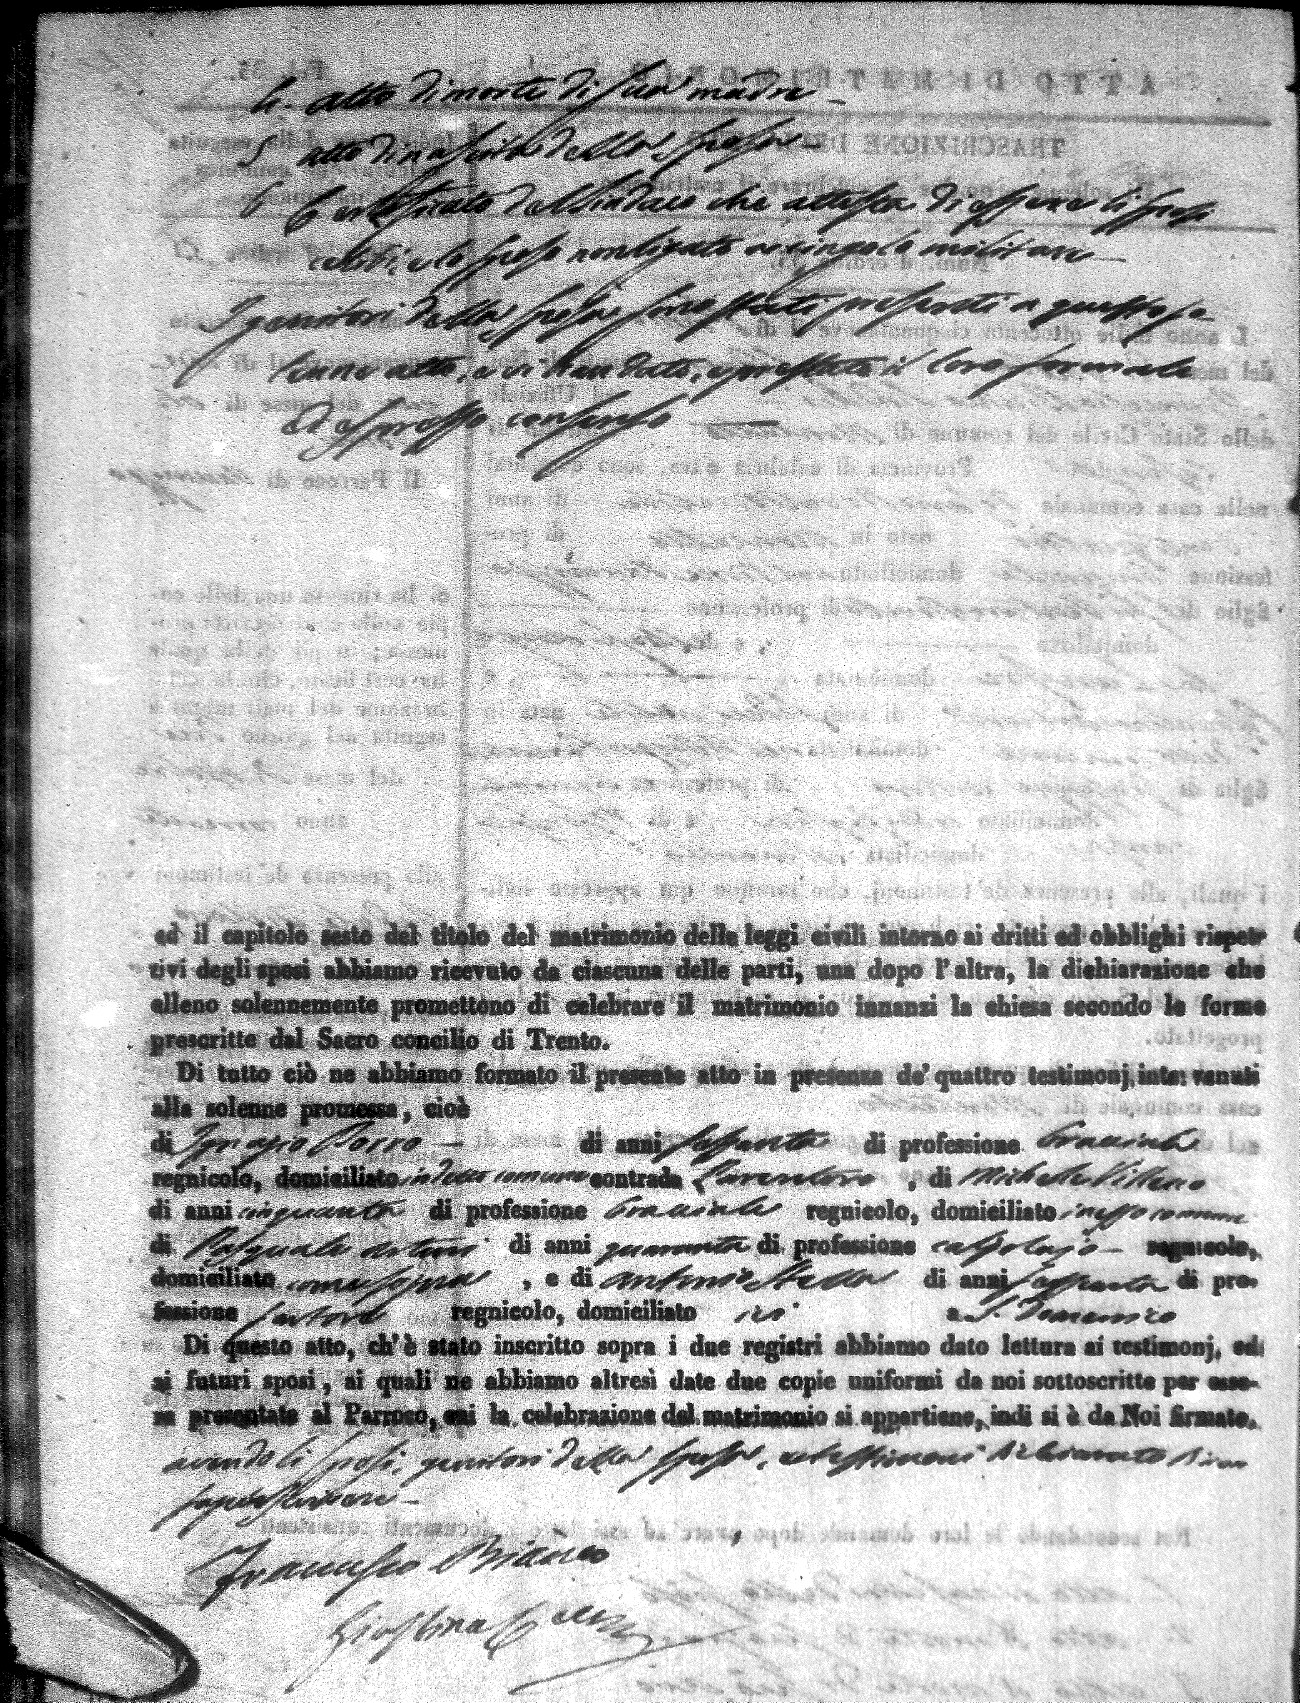 4. atto di morte di sua madre
5 atto di nascita della sposa
6 Certificato del Sindaco che attesta di essere li sposi
celibi, e lo sposo non ligato a vincolo militare
I genitori della sposa presenti a questo so
lenne atto, e vi han dato, e prestato il loro formale
ed espresso consenso
ed il capitolo sesto del titolo del matrimonio delle leggi civili intorno ai dritti ed obblighi rispet-
tivi degli sposi abbiamo ricevuto da ciascuna delle parti, una dopo l'altra, la dichiarazione che
elleno solennemente promettono di celebrare il matrimonio innanzi la chiesa secondo le forme
prescritte dal Sacro concilio di Trento.
Di tutto ciò ne abbiamo formato il presente atto in presenza de' quattro testimonj intervenuti
alla solenne promessa, cioè
di Ignazio Porro di anni sessanta di professione bracciale
regnicolo, domiciliato in detto comune contrada , di Michele Villano
di anni cinquanta di professione bracciale regnicolo, domiciliato in esso comune
di Pasquale di anni quaranta di professione calzolajo regnicolo,
domiciliato come sopra , e di Antonio Stella di anni sessanta di pro-
fessione sartore regnicolo, domiciliato ivi a S. Domenico
Di questo atto, ch'è stato inscritto sopra i due registri abbiamo dato lettura ai testimonj, ed
ai futuri sposi, ai quali ne abbiamo altresì date due copie uniformi da noi sottoscritte per esse-
re presentate al Parroco, cui la celebrazione del matrimonio si appartiene, indi si è da Noi firmato,
avendo li sposi, genitori della sposa, e testimoni dichiarato di non
saper scrivere
Francesco Bianco